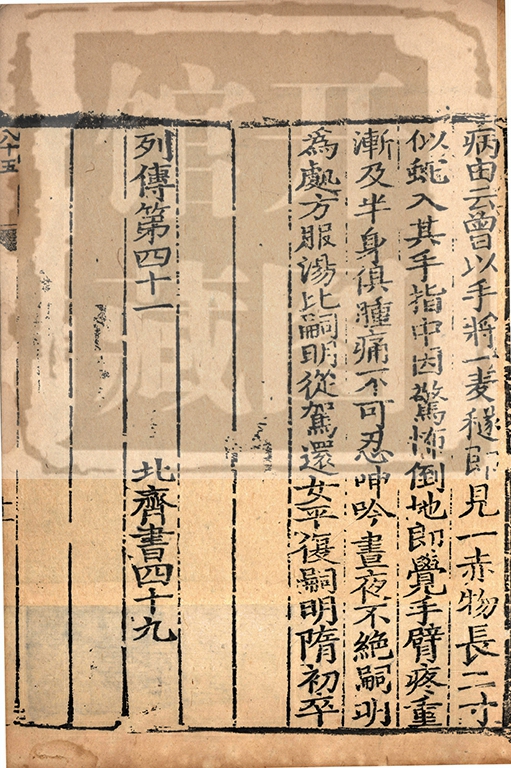 病由云曾以手將一麦穟即見一赤物長二寸
似虵入其手指中因驚怖倒地即覺手臂疼重
漸及半身俱腫痛不可忍呻吟晝夜不絶嗣明
為處方服湯比嗣明從駕還女平復嗣明隋初卒
列傳第四十一 北齊書四十九
八十五
十二
开国
馆藏